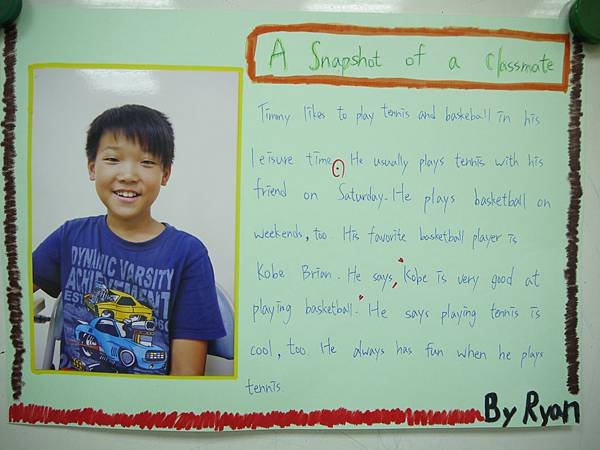 A Snapshot of a Classmate
Timmy likes to play tennis and baskeball in his
leisure time. He usually plays tennis with his
friend on Saturday. He plays basketball on
weekends, too. His favorite basketball player is
Kobe Brian. He says, "Kobe is very good at
playing basketball." He says playing tennis is
cool, too. He always has fun when he plays
tennis.
DYNAMIC VARSITY
ACHIEVEMENT
By Ryan